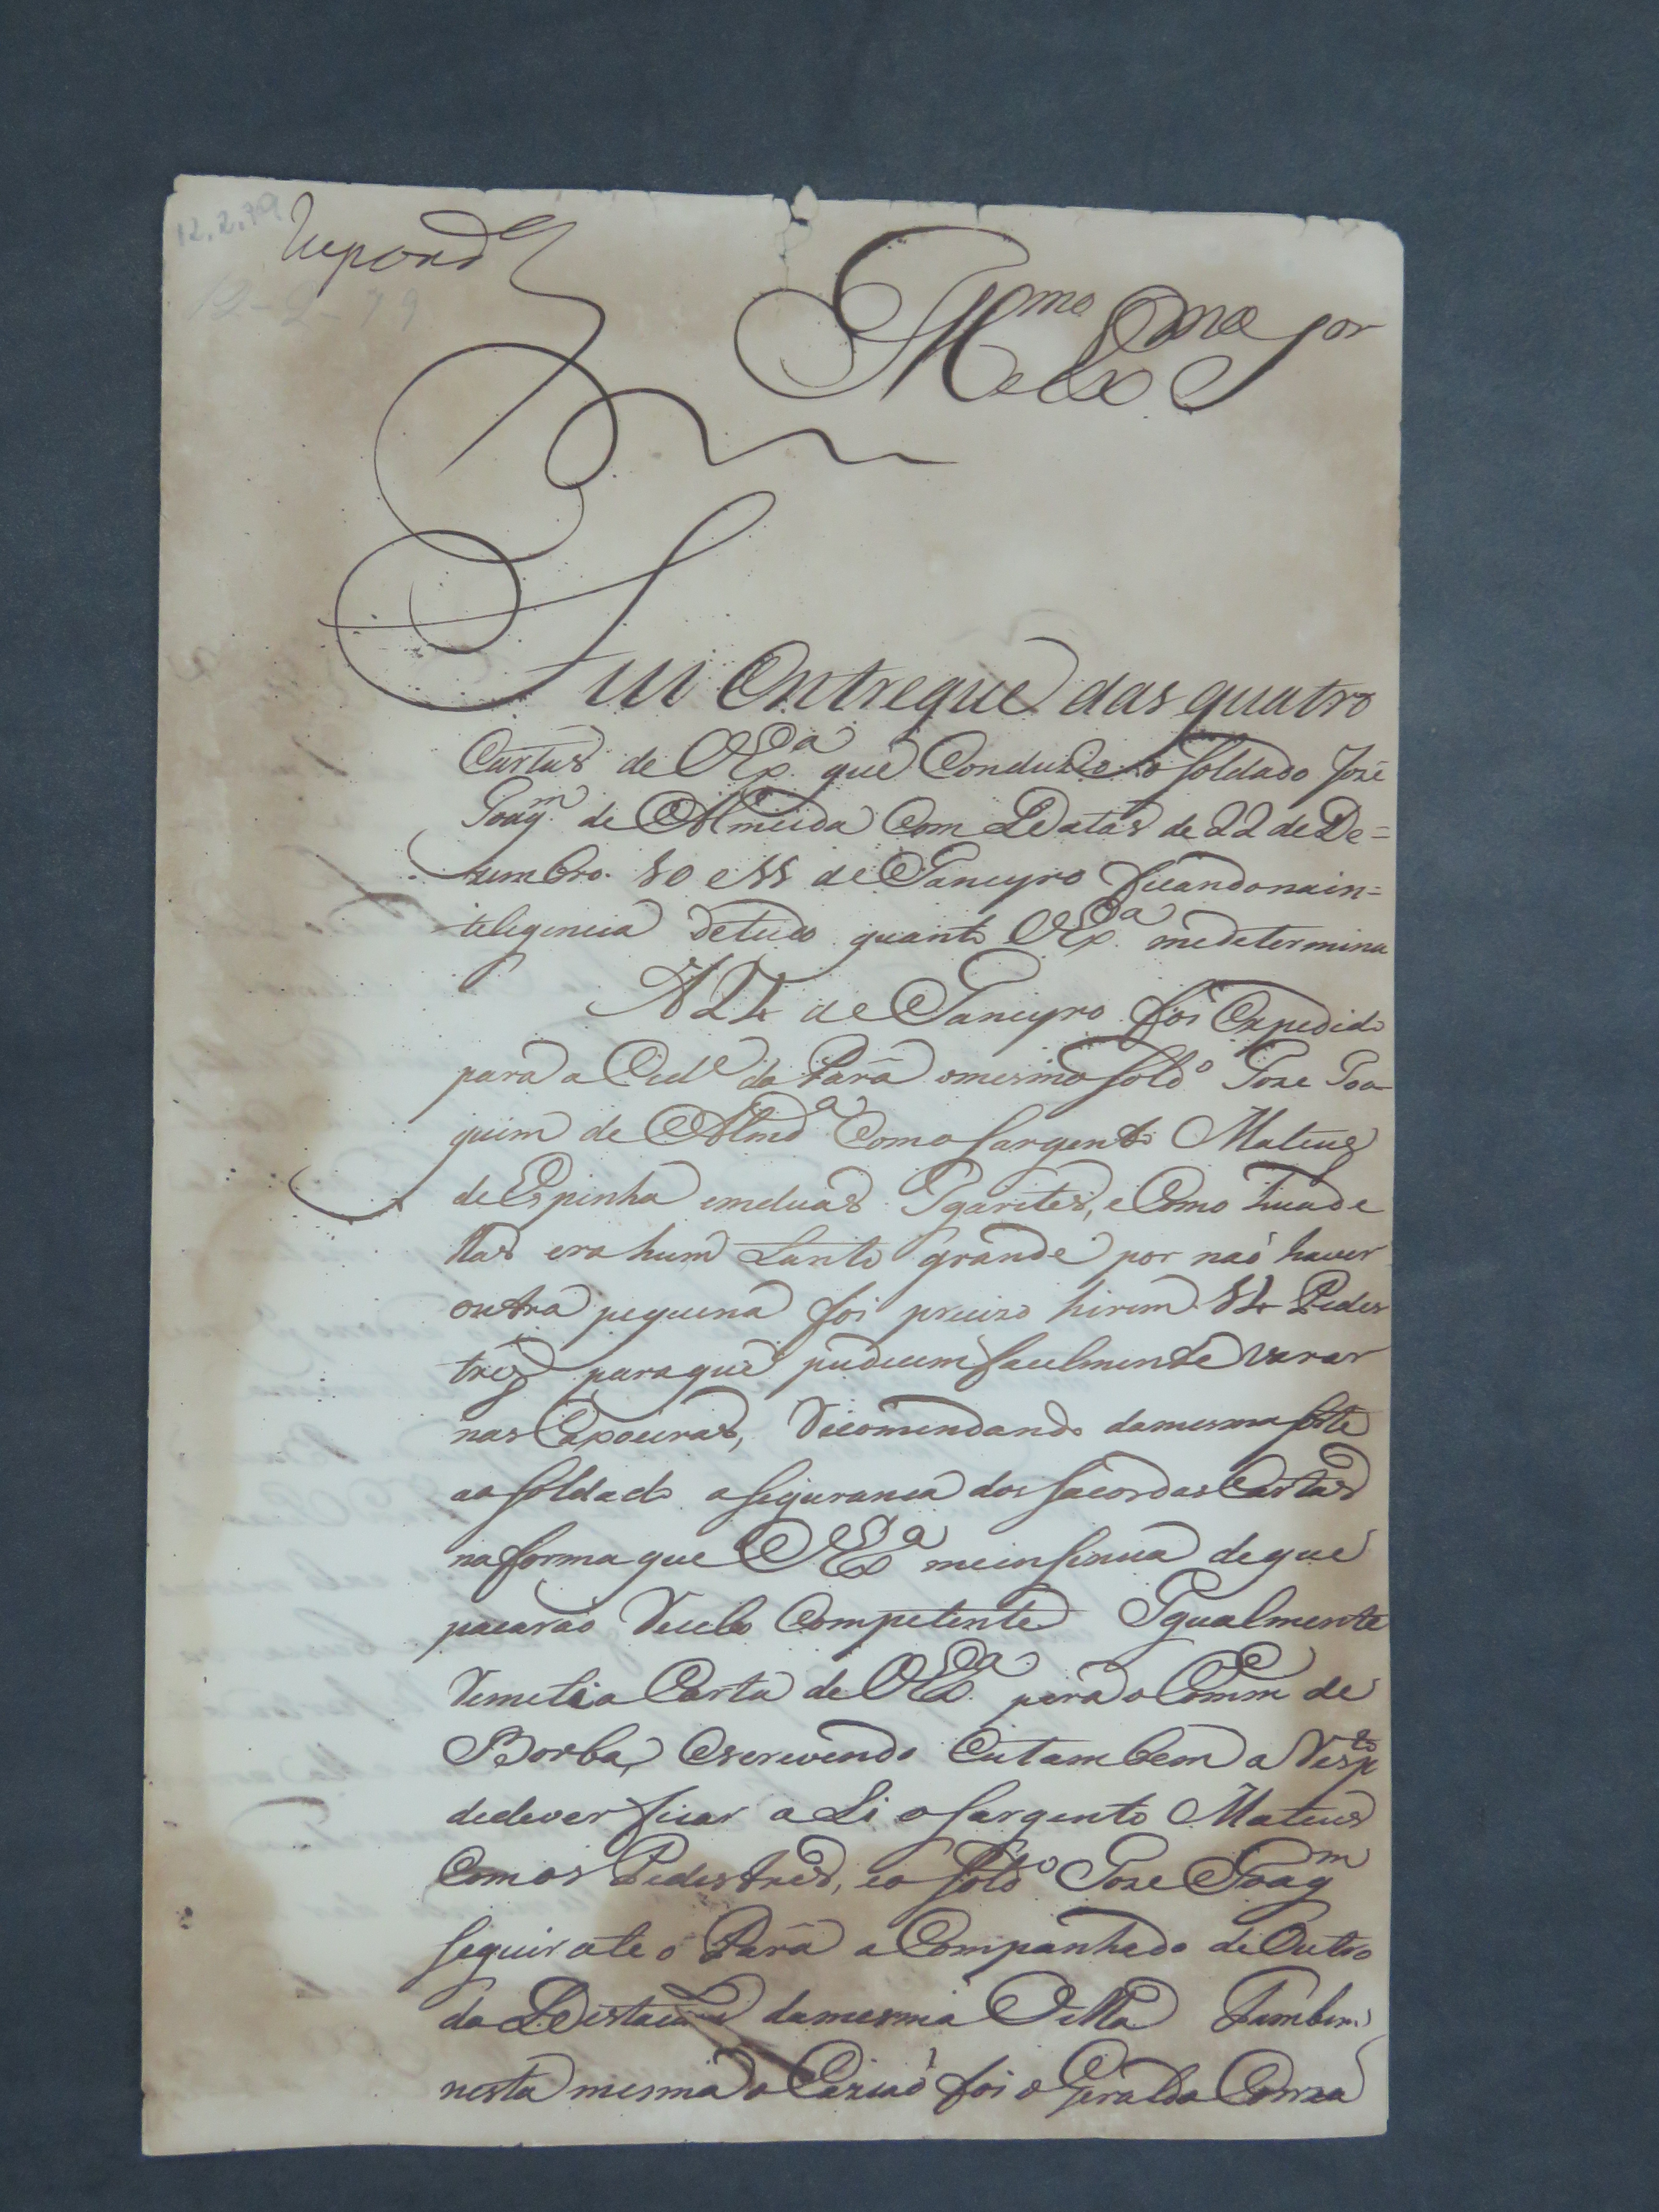 12.2.79
Respond.
12-2-79
Illmo Exmo Sor
Fui Entregue das quatro
Cartas de VExa. que Conduzio o Soldado Joze
Joaqm. de Almeida Com Datas de 22 de De=
zembro. 10 e 11 de Janeyro ficando na in=
teligencia de tudo quanto VExa. me determina
A 24 de Janeyro foi Expedido
para a Cide do Pará o mesmo Soldo Joze Joa-
quim de Almda Com o Sargento Mateus
de Espinha em duas Igarites, e Como huade
llas era hum tanto grande por naõ haver
outra piquena foi precizo hirem 14 Pedes
tres para que pudecem facelmente varar
nas Caxoeiras, Recomendando da mesma sorte
ao Soldado a Siguranca dos Sacos das Cartas
na forma que VExa me insinua de que
pacaraõ Recibo Competente Igualmente
Remeti a Carta de VExa. para o Comme de
Borba, Escrevendo Eu tambem a Respto
de dever ficar a Li o Sargento Mateus
Com os Pedestres, e o Soldo Joze Joaqm
Seguir ate o Pará a Companhado de Outro
do Destacamto da mesma Villa Tambem
nesta mesma o Cazião foi o Geraldo Correa